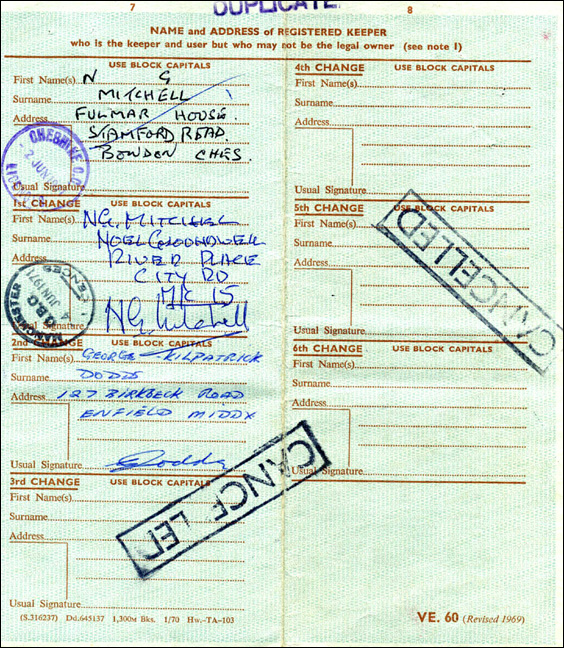 DUPLICATE
7
8
NAME and ADDRESS of REGISTERED KEEPER
who is the keeper and user but who may not be the legal owner (see note 1)
USE BLOCK CAPITALS
First Name(s) N G
Surname MITCHELL
Address FULMAR HOUSE.
STAMFORD ROAD.
BOWDON CHES.
CHESHIRE C.C.
2 JUN
Usual Signature
1st CHANGE USE BLOCK CAPITALS
First Name(s) N.G. MITCHELL
Surname NOEL
Address RIVER PLACE
CITY RD
M/C 15
MANCHESTER C.B.C.
4 JUN 1971
Usual Signature N G Mitchell
2nd CHANGE USE BLOCK CAPITALS
First Name(s) GEORGE KILPATRICK
Surname DODDS
Address 127 BIRKBECK ROAD
ENFIELD MIDDX
Usual Signature G Dodds
3rd CHANGE USE BLOCK CAPITALS
First Name(s)
Surname
Address
CANCELLED
Usual Signature
(S.316237) Dd.645137 1,300m Bks. 1/70 Hw.-TA-103
4th CHANGE USE BLOCK CAPITALS
First Name(s)
Surname
Address
Usual Signature
5th CHANGE USE BLOCK CAPITALS
First Name(s)
Surname
Address
CANCELLED
Usual Signature
6th CHANGE USE BLOCK CAPITALS
First Name(s)
Surname
Address
Usual Signature
VE. 60 (Revised 1969)